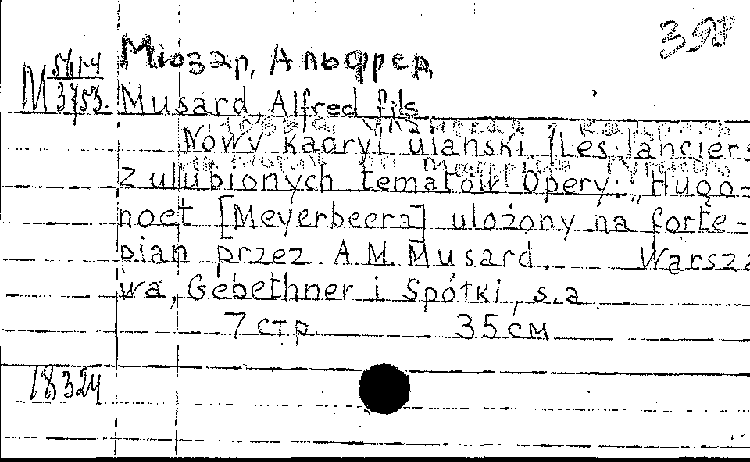 398
Мюзар, Альфред
М 5614
3453. Musard, Alfred fils
Nowy kadryl ułański [Les lancier
z ulubionych tematów Opery: „Hugo-
noet [Meyerbeera] ułożony na forte-
pian przez A.M. Musard. Warsza
wa, Gebethner i Spółki, s.a
7 стр 35 см
18324